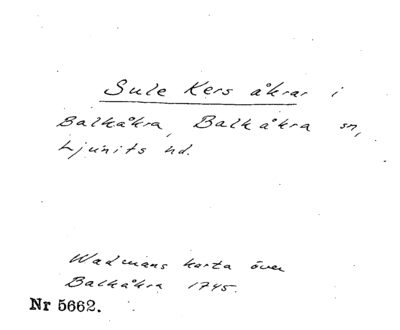 Sule Kers åkrar i
Balkåkra, Balkåkra sn,
Ljunits hd.
Wadmans karta över
Balkåkra 1745.
Nr 5662.